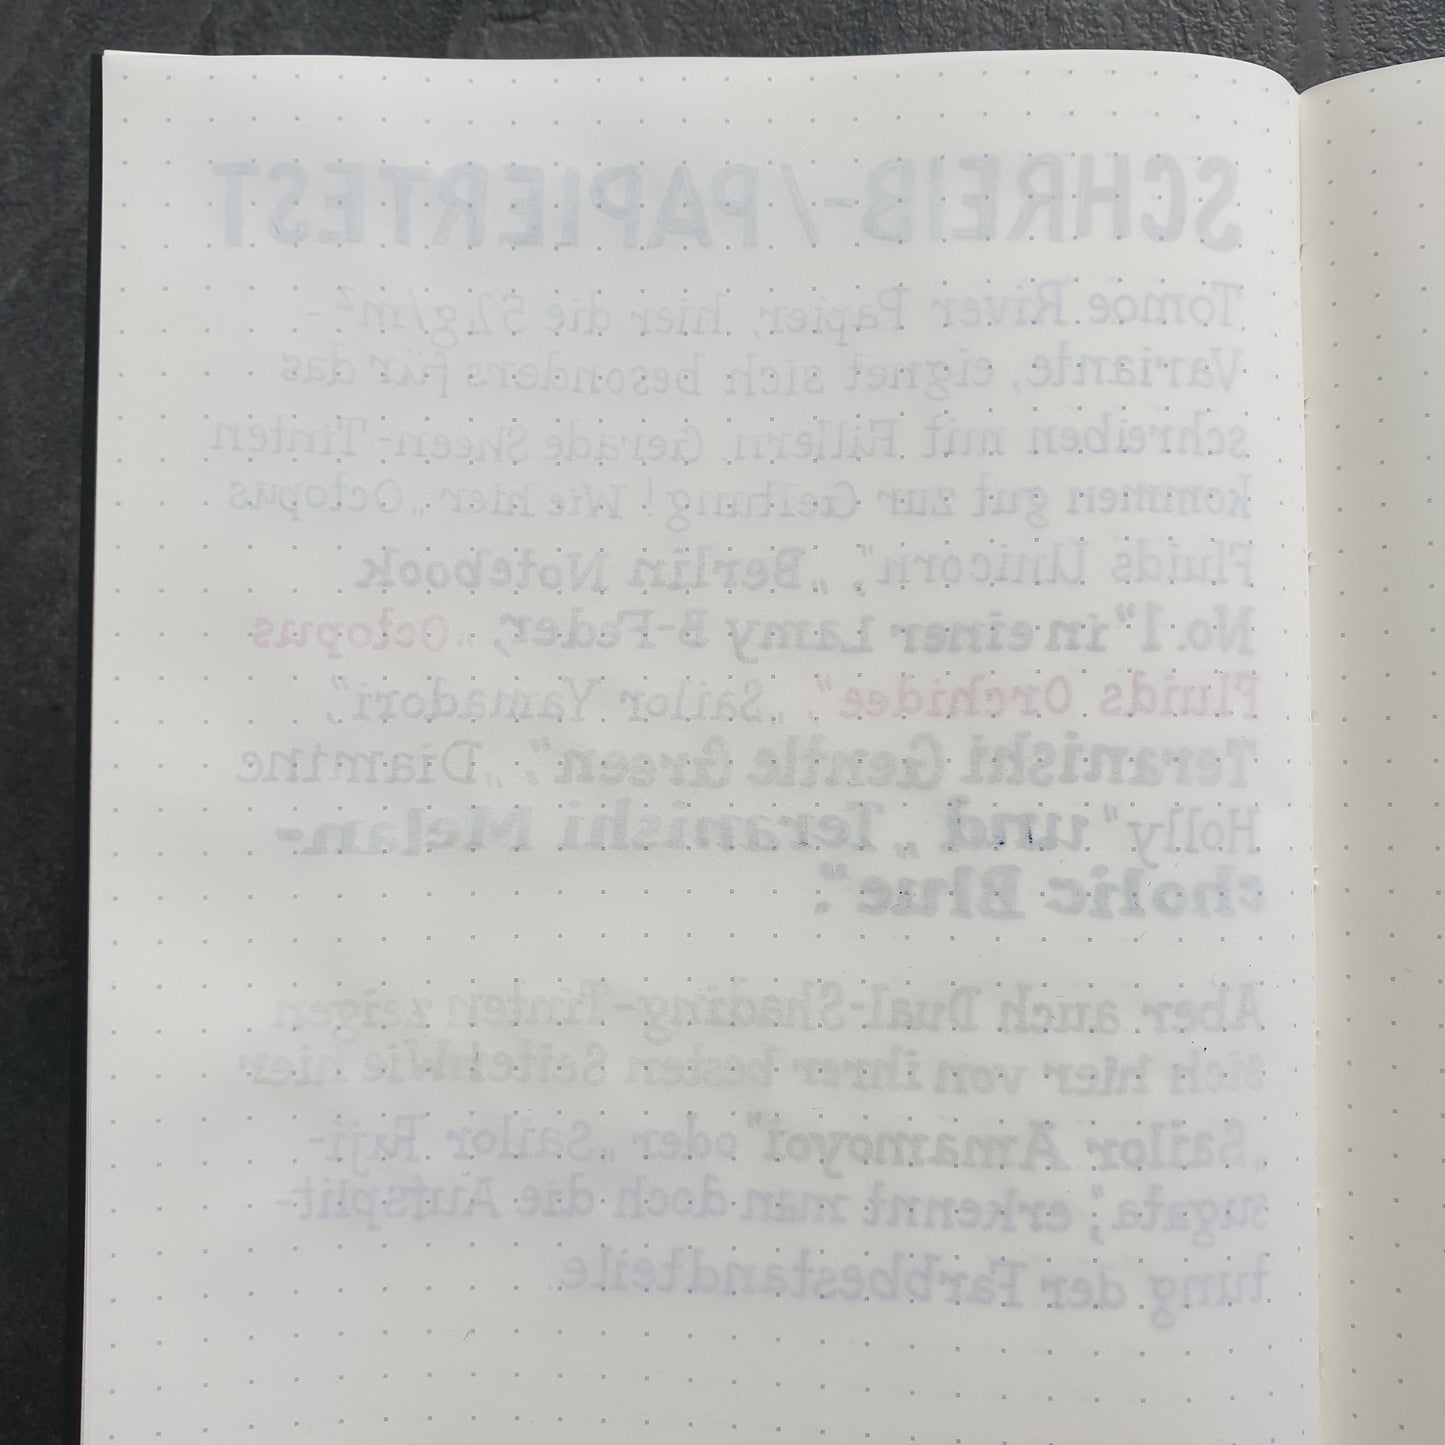 SCHREIB-/PAPIERTEST
Tomoe River Papier, hier die 52g/m²-
Variante, eignet sich besonders für das
schreiben mit Füllern. Gerade Sheen-Tinten
kommen gut zur Geltung! Wie hier „Octopus
Fluids Unicorn“, „Berlin Notebook
No.1“ in einer Lamy B-Feder, „Octopus
Fluids Orchidee“, „Sailor Yamadori“,
Teranishi Gentle Green“, „Diamine
Holly“ und „Teranishi Melan-
cholic Blue“.
Aber auch Dual-Shading-Tinten zeigen
sich hier von ihrer besten Seite! Wie hier
„Sailor Amamoyoi“ oder „Sailor Fuji-
sugata“; erkennt man doch die Aufsplit-
tung der Farbbestandteile.